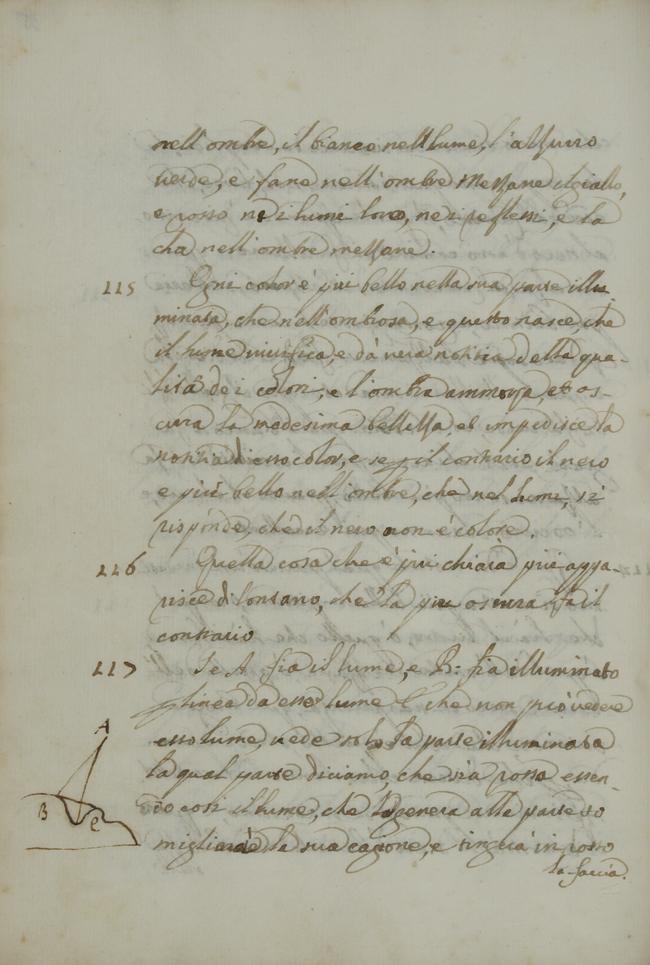 nell'ombre, il bianco nell lume, l'azzurro
verde, e fane nell'ombre mezzane il giallo,
e rosso nei lumi loro, nei reflessi, e la
cha nell'ombre mezzane.
115 Ogni color è più bello nella sua parte illu
minata, che nell'ombrosa, e questo nasce, che
il lume vivifica, e dà vera notitia della qua-
lità dei colori, e l'ombra ammorza, et os-
cura la medesima bellezza, et impedisce la
notitia di esso color, e se pil contrario il nero
e più bello nell'ombre, che nel lume, si
risponde, che il nero non è colore.
116 Quella cosa che è più chiara più appa-
risce di lontano, che la più oscura fà il
contrario
117 Se A. fia il lume, e B: fia illuminato
linea da esso lume C che non può vedere
esso lume, vede solo la parte illuminata
la qual parte diciamo, che sia rossa essen-
do così il lume, che genera alla parte so
miglia la sua cagone, e tingua in rosso
la faccia.
A
B C